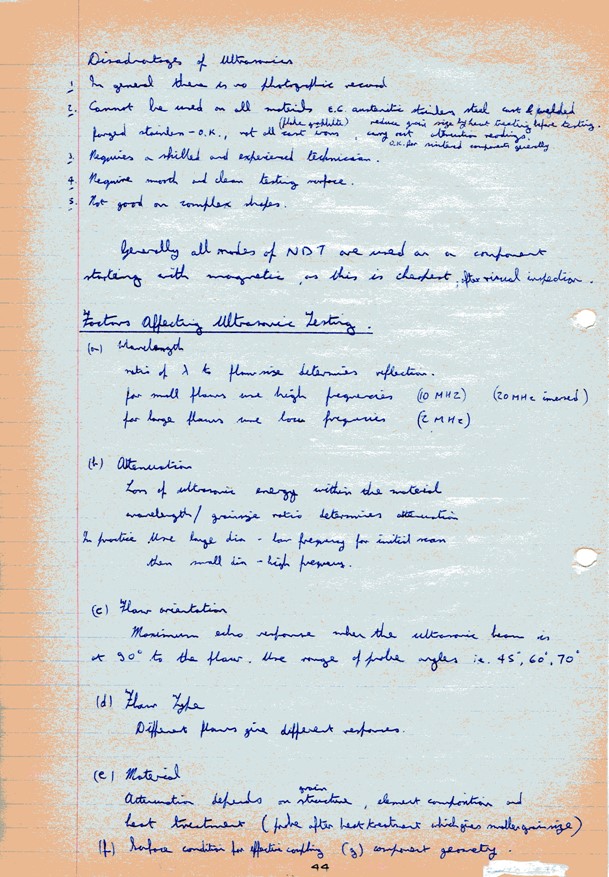 Disadvantages of Ultrasonics
1. In general there is no photographic record
2. Cannot be used on all materials e.g. austenitic stainless steel cast & welded
(flake graphite) reduce grain size by heat treating before testing.
forged stainless - O.K., not all cast irons, carry out attenuation readings.
O.K. for sintered components generally
3. Requires a skilled and experienced technician.
4. Require smooth and clean testing surface.
5. Not good on complex shapes.
Generally all modes of NDT are used on a component
starting with magnetic, as this is cheapest, after visual inspection.
Factors Affecting Ultrasonic Testing.
(a) Wavelength
ratio of λ to flaw size determines reflection.
for small flaws use high frequencies (10 MHZ) (20 MHz imersed)
for large flaws use low frequencies (2 MHz)
(b) Attenuation
Loss of ultrasonic energy within the material
wavelength/grainsize ratio determines attenuation
In practice Use large dia - low frequency for initial scan
then small dia - high frequency.
(c) Flaw orientation
Maximum echo response when the ultrasonic beam is
at 90° to the flaw. Use range of probe angles i.e. 45°, 60°, 70°
(d) Flaw Type
Different flaws give different responses.
(e) Material
Attenuation depends on grain structure, element composition and
heat treatment (probe after heat treatment which gives smaller grain size)
(f) Surface condition for effective coupling (g) component geometry.
44